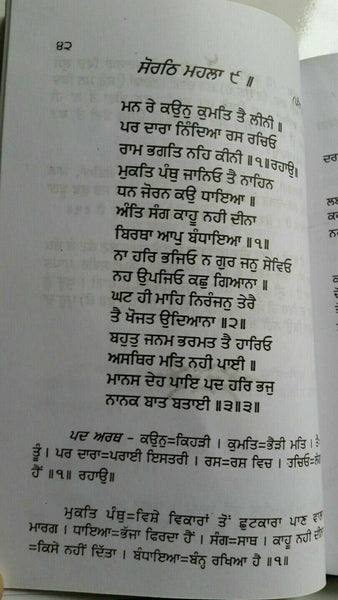 ੪੨
ਸੋਰਠਿ ਮਹਲਾ ੯ ॥
ਮਨ ਰੇ ਕਉਨੁ ਕੁਮਤਿ ਤੈ ਲੀਨੀ ॥
ਪਰ ਦਾਰਾ ਨਿੰਦਿਆ ਰਸ ਰਚਿਓ
ਰਾਮ ਭਗਤਿ ਨਹਿ ਕੀਨੀ ॥੧॥ਰਹਾਉ॥
ਮੁਕਤਿ ਪੰਥੁ ਜਾਨਿਓ ਤੈ ਨਾਹਿਨ
ਧਨ ਜੋਰਨ ਕਉ ਧਾਇਆ ॥
ਅੰਤਿ ਸੰਗ ਕਾਹੂ ਨਹੀ ਦੀਨਾ
ਬਿਰਥਾ ਆਪੁ ਬੰਧਾਇਆ ॥੧॥
ਨਾ ਹਰਿ ਭਜਿਓ ਨ ਗੁਰ ਜਨੁ ਸੇਵਿਓ
ਨਹ ਉਪਜਿਓ ਕਛੁ ਗਿਆਨਾ ॥
ਘਟ ਹੀ ਮਾਹਿ ਨਿਰੰਜਨੁ ਤੇਰੈ
ਤੈ ਖੋਜਤ ਉਦਿਆਨਾ ॥੨॥
ਬਹੁਤੁ ਜਨਮ ਭਰਮਤ ਤੈ ਹਾਰਿਓ
ਅਸਥਿਰ ਮਤਿ ਨਹੀ ਪਾਈ ॥
ਮਾਨਸ ਦੇਹ ਪਾਇ ਪਦ ਹਰਿ ਭਜੁ
ਨਾਨਕ ਬਾਤ ਬਤਾਈ ॥੩॥੩॥
ਪਦ ਅਰਥ - ਕਉਨੁ=ਕਿਹੜੀ । ਕੁਮਤਿ=ਭੈੜੀ ਮਤਿ । ਤੈ=
ਤੂੰ । ਪਰ ਦਾਰਾ=ਪਰਾਈ ਇਸਤਰੀ । ਰਸ=ਰਸ਼ ਵਿਚ । ਰਚਿਓ=
ਹੈਂ ॥੧॥ ਰਹਾਉ॥
ਮੁਕਤਿ ਪੰਥੁ=ਵਿਸ਼ੇ ਵਿਕਾਰਾਂ ਤੋਂ ਛੁਟਕਾਰਾ ਪਾਣ ਵਾਲਾ
ਮਾਰਗ । ਧਾਇਆ=ਭੱਜਾ ਫਿਰਦਾ ਹੈਂ । ਸੰਗ=ਸਾਥ । ਕਾਹੂ ਨਹੀ ਦੀਨਾ
=ਕਿਸੇ ਨਹੀਂ ਦਿੱਤਾ । ਬੰਧਾਇਆ=ਬੰਨ੍ਹ ਰਖਿਆ ਹੈ ॥੧॥